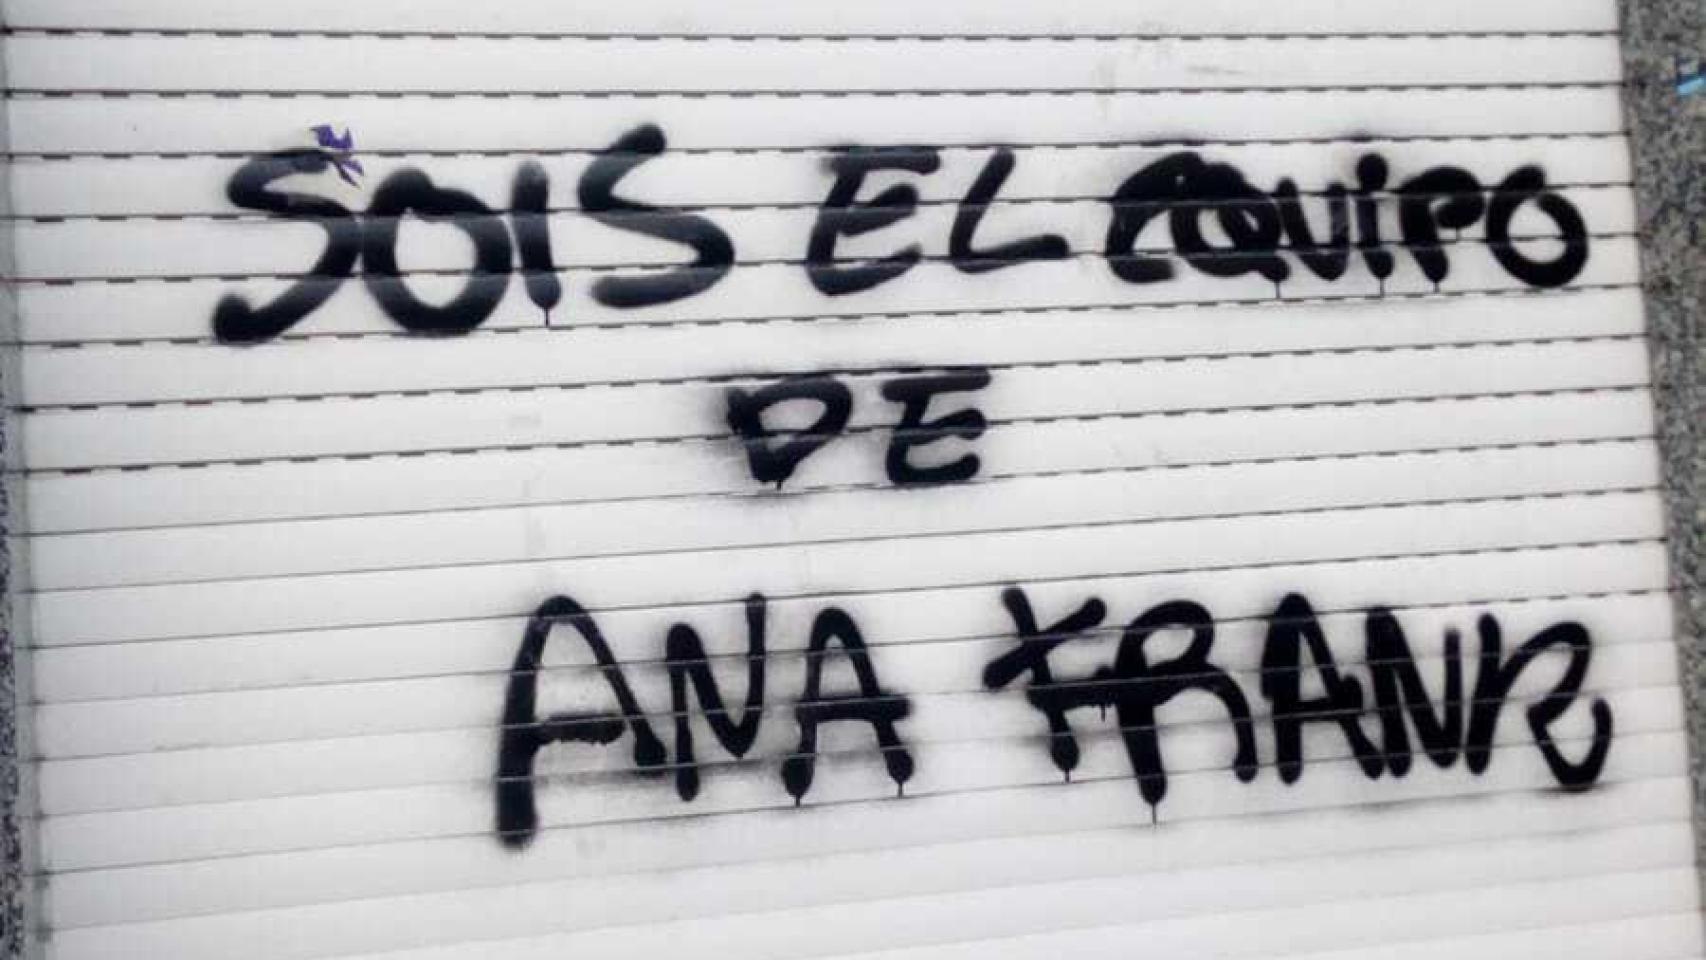 SOIS EL equipo
DE
ANA FRANK